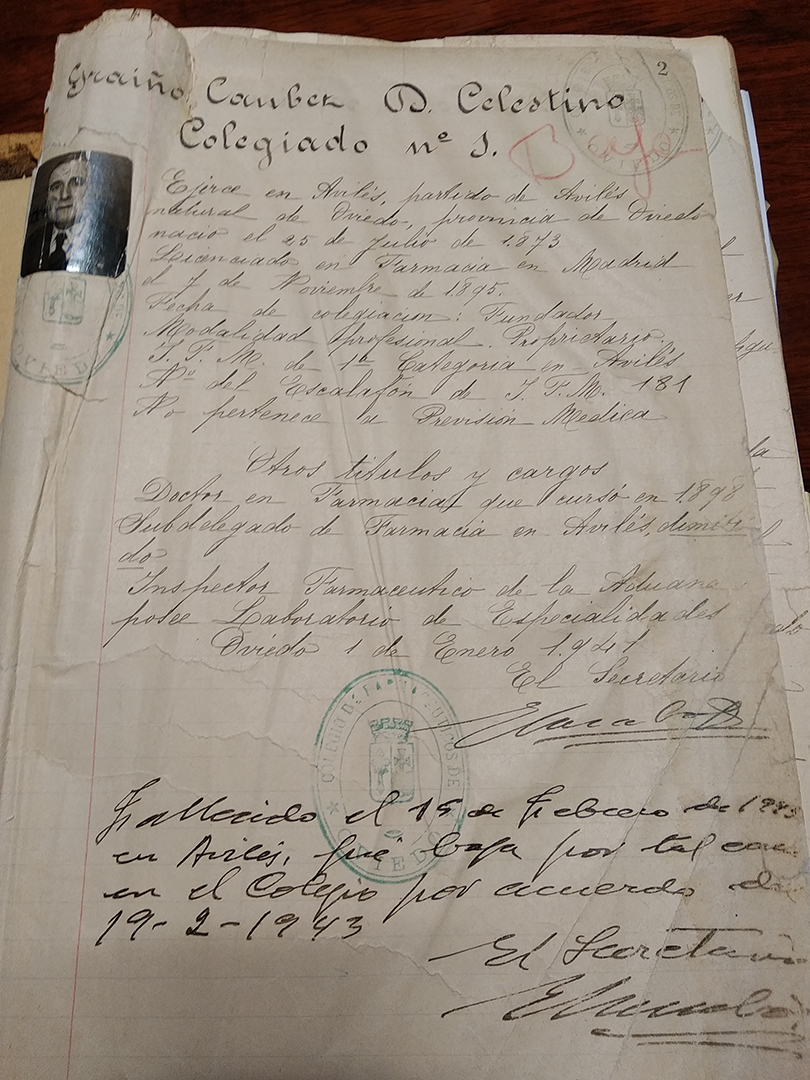 2
Graiño Caubet D. Celestino
Colegiado nº 1.
Baja
Ejerce en Avilés, partido de Avilés
natural de Oviedo, provincia de Oviedo
nacio el 25 de Julio de 1.873
Licenciado en Farmacia en Madrid
el 7 de Noviembre de 1.895.
Fecha de colegiacion: Fundador
Modalidad Profesional. Proprietario.
I. F. M. de 1ª Categoria en Avilés
Nº del Escalafón de I. F. M. 181
No pertenece a Previsión Medica
Otros titulos y cargos
Doctor en Farmacia, que cursó en 1.898
Subdelegado de Farmacia en Avilés, dimiti
do
Inspector Farmaceutico de la Aduana
posee Laboratorio de Especialidades
Oviedo 1 de Enero 1.941
El Secretario
COLEGIO DE FARMACEUTICOS DE
OVIEDO
Fallecido el 15 de Febrero de
en Avilés, fué baja por tal
en el Colegio por acuerdo de
19-2-1943
El Secretario
OVIEDO
OVIEDO